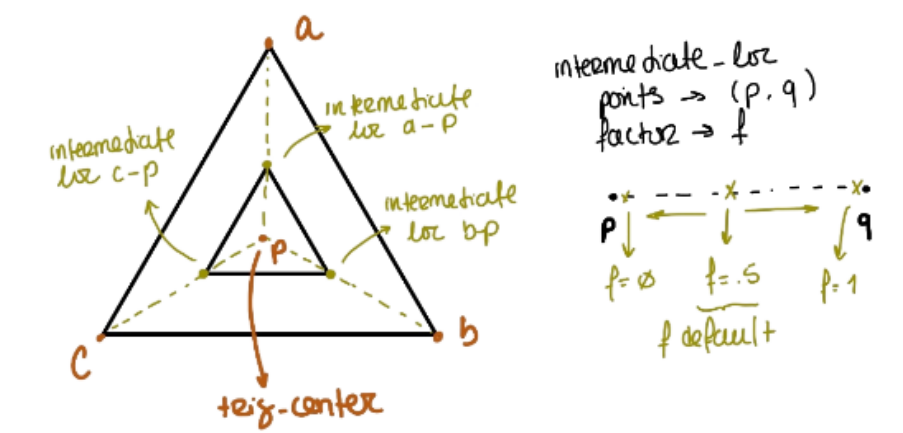 a
intermediate
loc a-p
intermediate
loc c-p
intermediate
loc b-p
p
c
b
trig-center
intermediate_loc
points → (p, q)
factor → f
p
q
f=∅
f=.5
f=1
f default